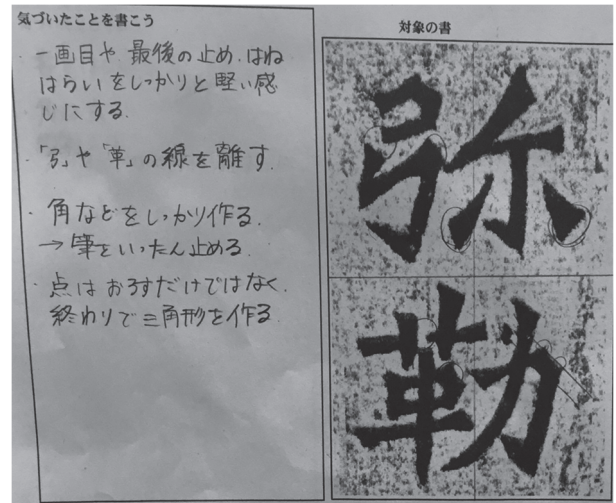 気づいたことを書こう
・一画目や最後の止め、はね
はらいをしっかりと堅い感
じにする.
・「弓」や「革」の線を離す.
・角などをしっかり作る.
→筆をいったん止める.
・点はおろすだけではなく、
終わりで三角形を作る
対象の書
弥
勒